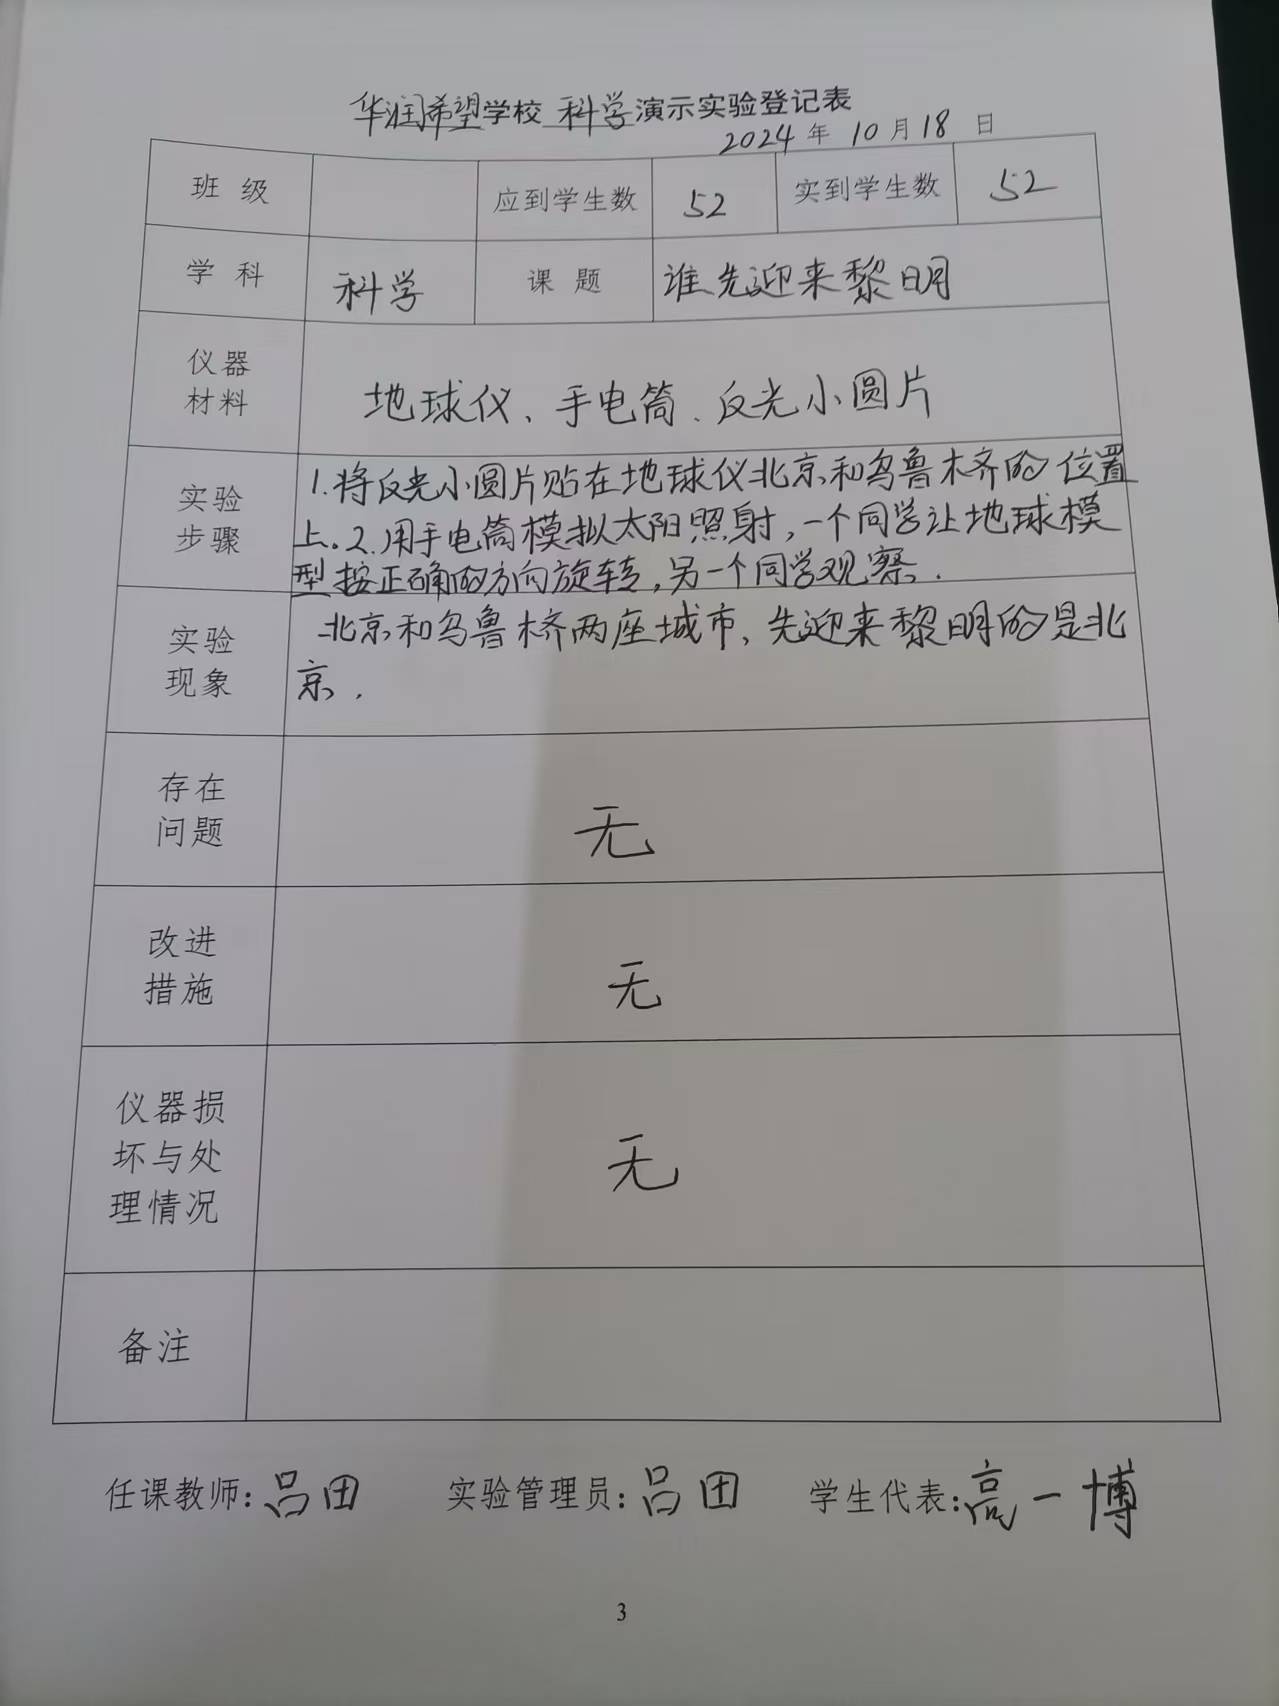 华润希望学校 科学演示实验登记表
2024 年 10 月 18 日
班 级 应到学生数 52 实到学生数 52
学 科 科学 课 题 谁先迎来黎明
仪器
材料
地球仪、手电筒、反光小圆片
实验
步骤
1.将反光小圆片贴在地球仪北京和乌鲁木齐的位置
上.2.用手电筒模拟太阳照射,一个同学让地球模
型按正确的方向旋转,另一个同学观察.
实验
现象
北京和乌鲁木齐两座城市,先迎来黎明的是北
京.
存在
问题
无
改进
措施
无
仪器损
坏与处
理情况
无
备注
任课教师:吕团 实验管理员:吕团 学生代表:高一博
3